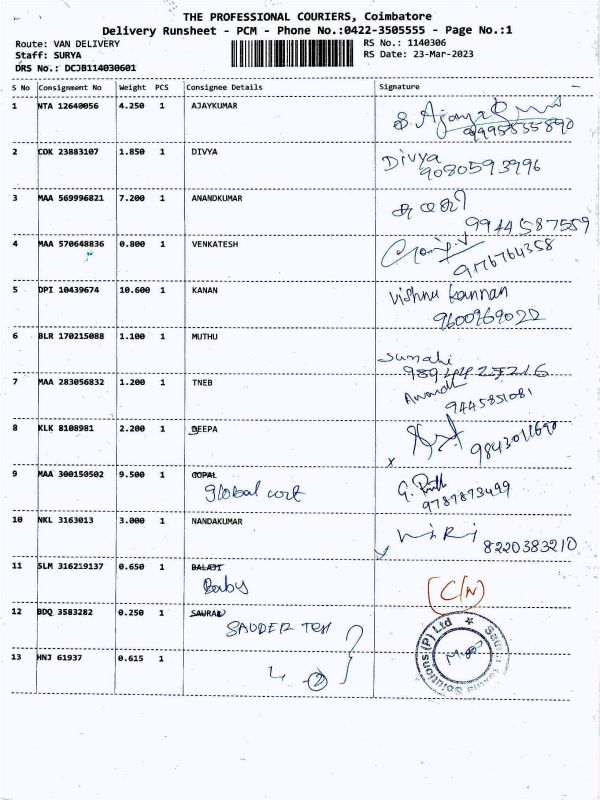 THE PROFESSIONAL COURIERS, Coimbatore
Delivery Runsheet - PCM - Phone No.:0422-3505555 - Page No.:1
Route: VAN DELIVERY
RS No.: 1140306
Staff: SURYA
RS Date: 23-Mar-2023
DRS No.: DCJB114030601
S No Consignment No Weight PCS Consignee Details Signature
1 NTA 12640056 4.250 1 AJAYKUMAR
2 COK 23883107 1.850 1 DIVYA Divya
9080593996
3 MAA 569996821 7.200 1 ANANDKUMAR
9944587559
4 MAA 570648836 0.800 1 VENKATESH
9176764358
5 DPI 10439674 10.600 1 KANAN Vishnu Kannan
9600969022
6 BLR 170215088 1.100 1 MUTHU
7 MAA 283056832 1.200 1 TNEB
9445851081
8 KLK 8108981 2.200 1 DEEPA
9843011690
9 MAA 300150502 9.500 1 GOPAL
Global
9787873499
10 NKL 3163013 3.000 1 NANDAKUMAR
8220383210
11 SLM 316219137 0.650 1 BALAJI
Baby
(C/N)
12 BDQ 3583282 0.250 1 SAURAV
13 HNJ 61937 0.615 1
2